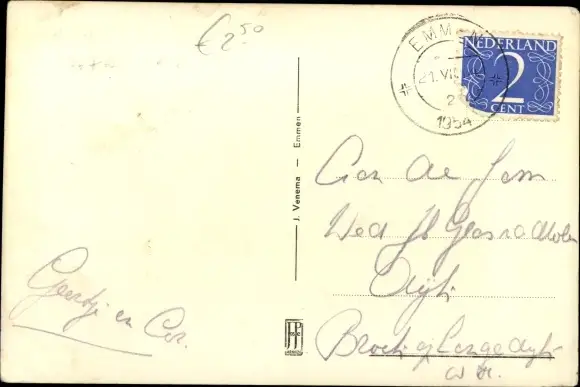 € 2.50
EMMEN
21.VII
2
1954
NEDERLAND
2
CENT
J. Venema — Emmen
Aan de Fam
Wed
Dijk
Broek op Langedijk
Geertje en Cor.